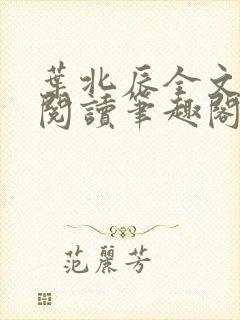 葉北辰全文
閱讀筆趣閣
范麗芳